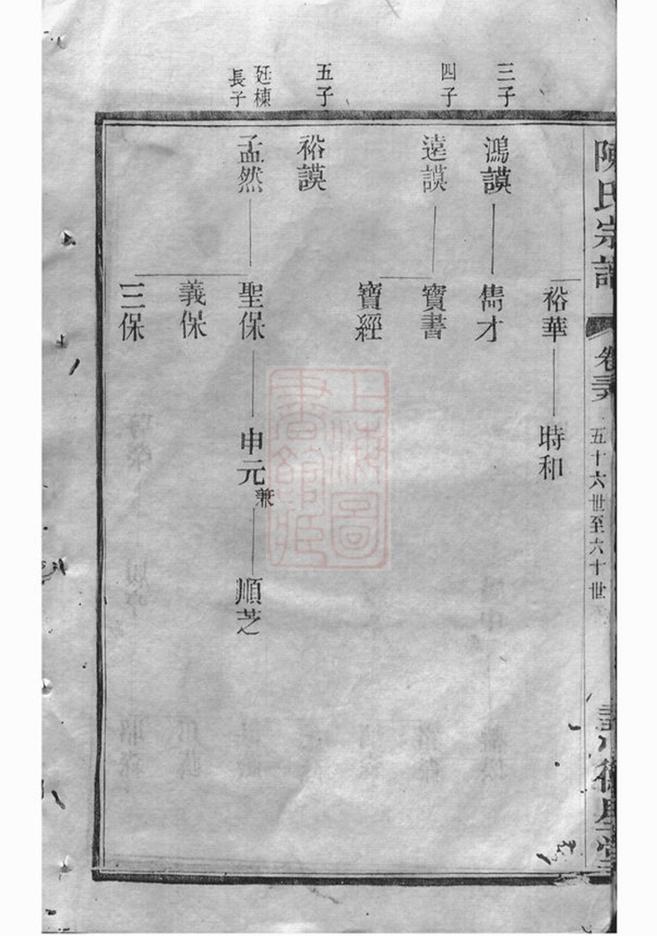 陳氏宗譜
卷三
五十六世至六十世
德星堂
裕華
時和
三子
鴻謨
雋才
四子
遠謨
寶書
寶經
五子
裕謨
廷棟
長子
孟然
聖保
申元兼
順芝
義保
三保
上海圖
書館藏